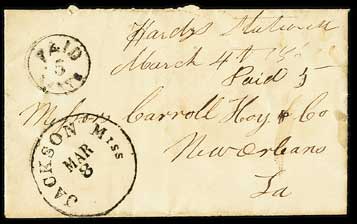 Hardys Station
March 4th
Paid 5
PAID
5
Messrs Carroll Hoy & Co
New Orleans
La
JACKSON Miss
MAR
8